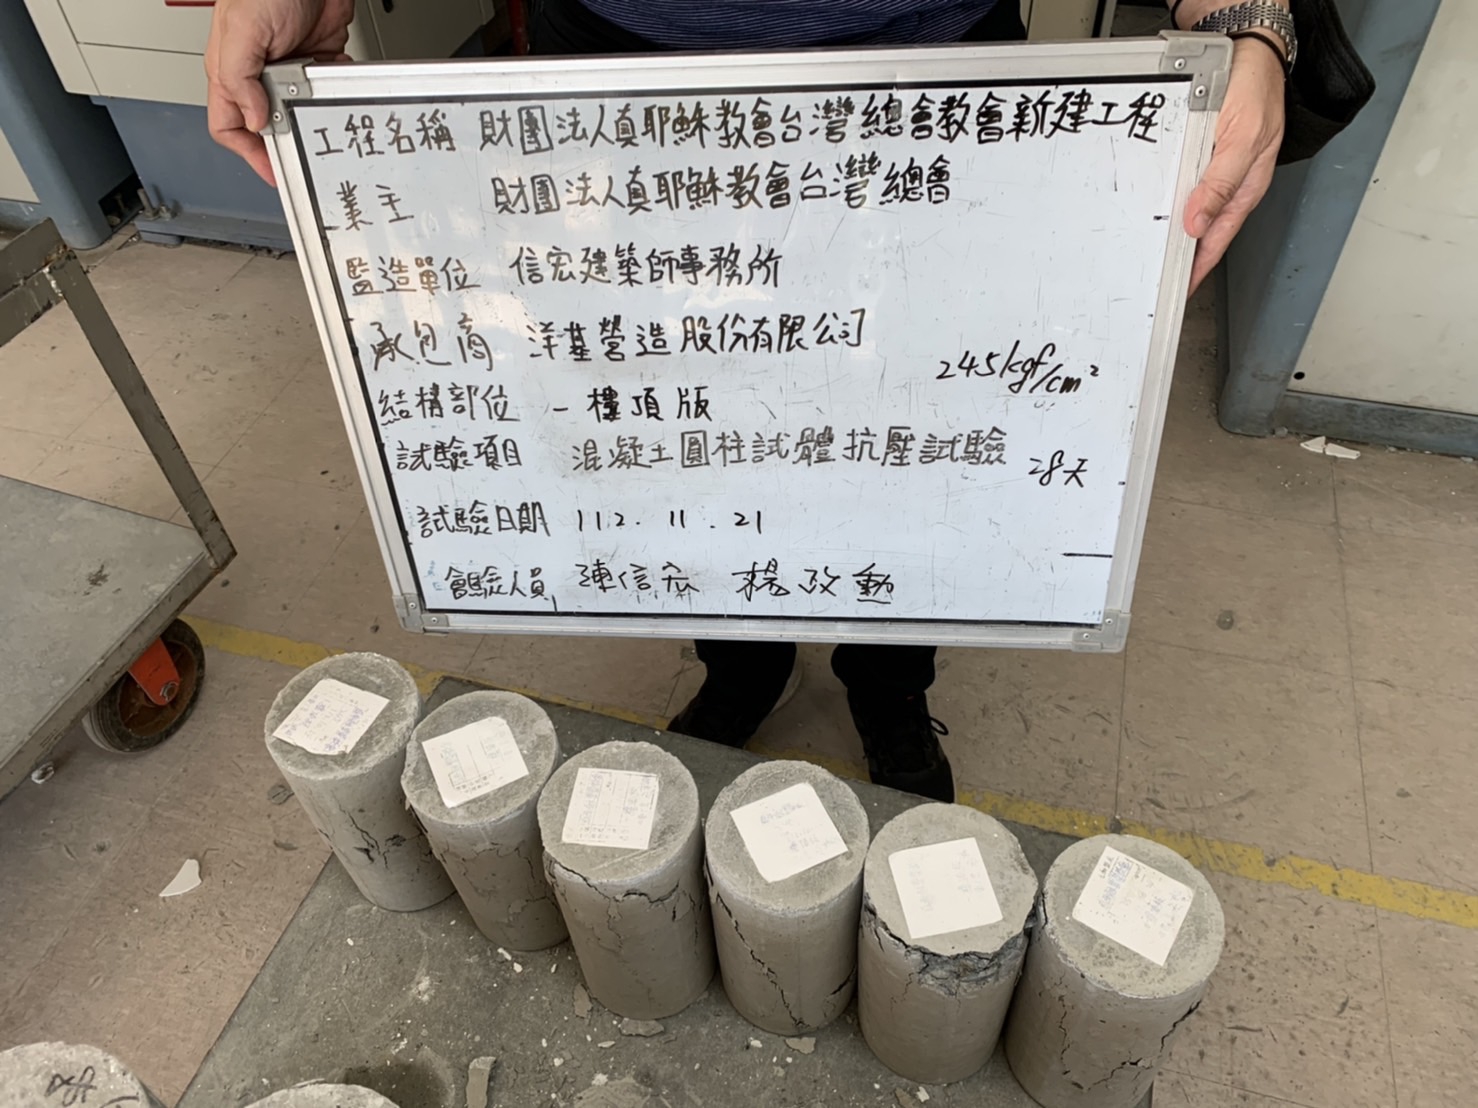 工程名稱 財團法人真耶穌教會台灣總會教會新建工程
業主 財團法人真耶穌教會台灣總會
監造單位 信宏建築師事務所
承包商 洋基營造股份有限公司
245kgf/cm²
結構部位 一樓頂版
試驗項目 混凝土圓柱試體抗壓試驗 28天
試驗日期 112.11.21
會驗人員 陳信宏 楊政勳